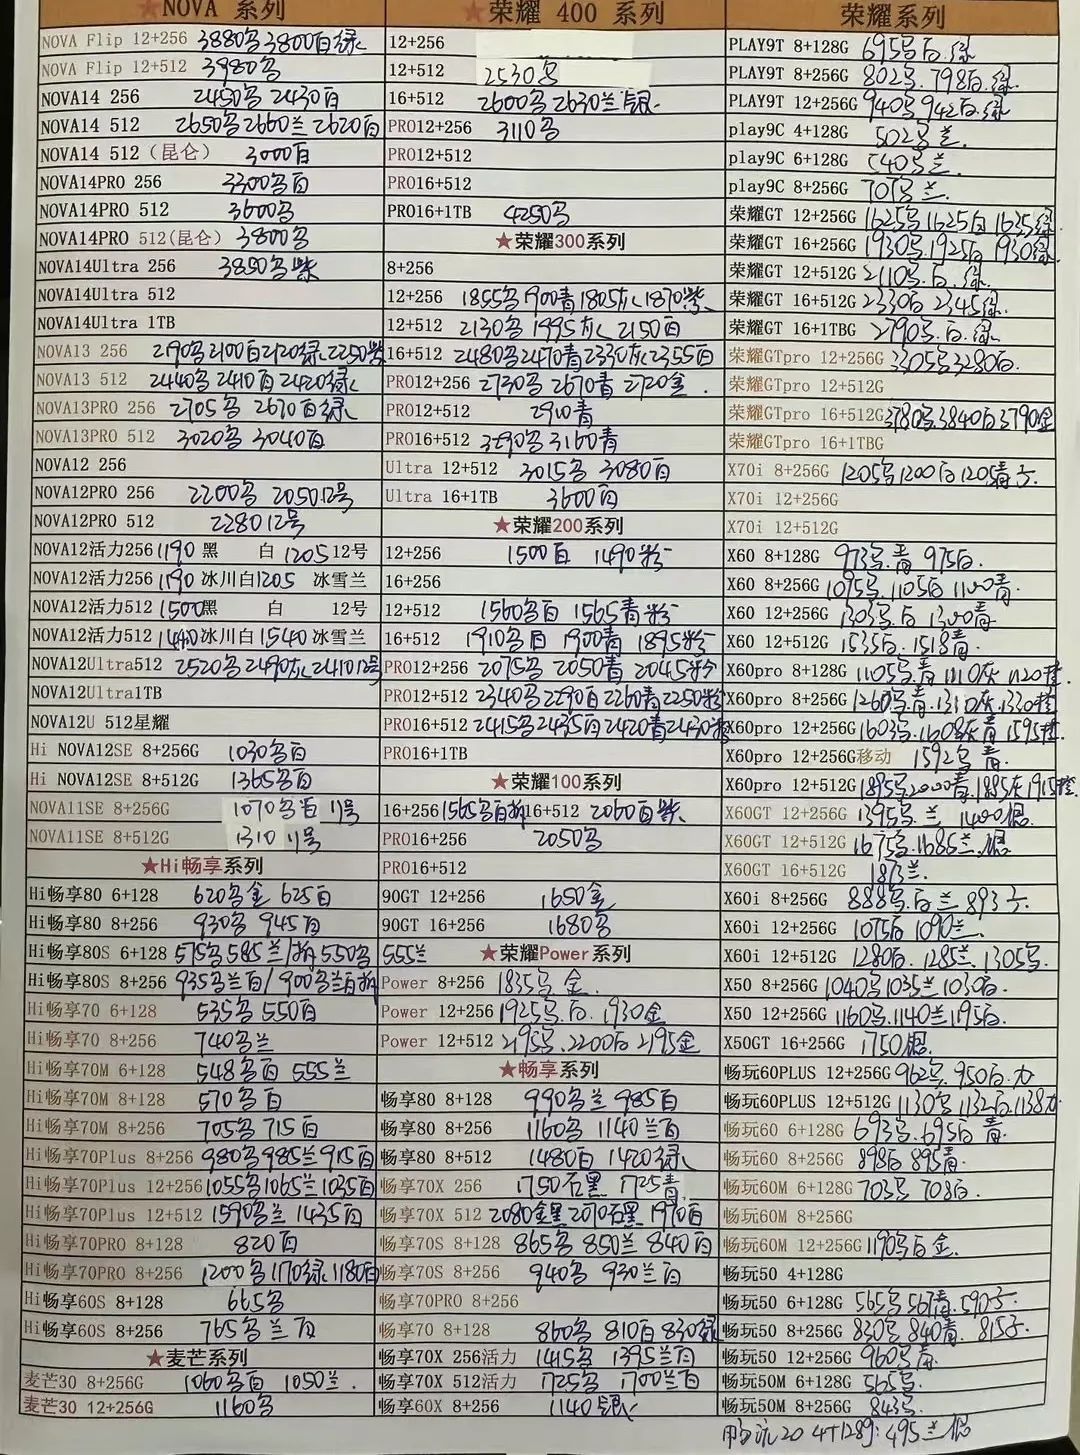 ★NOVA 系列
NOVA Flip 12+256 3880多3800白绿
NOVA Flip 12+512 3980多
NOVA14 256 2450多 2430白
NOVA14 512 2650多2660兰2620白
NOVA14 512（昆仑） 3000白
NOVA14PRO 256 3300多白
NOVA14PRO 512 3600多
NOVA14PRO 512(昆仑) 3800多
NOVA14Ultra 256 3850多紫
NOVA14Ultra 512
NOVA14Ultra 1TB
NOVA13 256 2190多2100白2120绿2250紫
NOVA13 512 2440多 2410白 2420绿
NOVA13PRO 256 2705多 2670白绿
NOVA13PRO 512 3020多 3040白
NOVA12 256
NOVA12PRO 256 2200多 2050 12号
NOVA12PRO 512 2280 12号
NOVA12活力256 1190 黑 白 1205 12号
NOVA12活力256 1190 冰川白1205 冰雪兰
NOVA12活力512 1500黑 白 12号
NOVA12活力512 1440冰川白1540冰雪兰
NOVA12Ultra512 2520多2490灰2410 12号
NOVA12Ultra1TB
NOVA12U 512星耀
Hi NOVA12SE 8+256G 1030多白
Hi NOVA12SE 8+512G 1365多白
NOVA11SE 8+256G 1070多白 11号
NOVA11SE 8+512G 1310 11号
★Hi畅享系列
Hi畅享80 6+128 620多金 625白
Hi畅享80 8+256 930多 945白
Hi畅享80S 6+128 575多585兰/拆550多 555兰
Hi畅享80S 8+256 935多兰白/900多兰白拆
Hi畅享70 6+128 535多 550白
Hi畅享70 8+256 740多兰
Hi畅享70M 6+128 548多白 555兰
Hi畅享70M 8+128 570多白
Hi畅享70M 8+256 705多 715白
Hi畅享70Plus 8+256 980多985兰915白
Hi畅享70Plus 12+256 1055多1065兰1035白
Hi畅享70Plus 12+512 1590多兰 1435白
Hi畅享70PRO 8+128 820白
Hi畅享70PRO 8+256 1200多1170绿1180白
Hi畅享60S 8+128 665多
Hi畅享60S 8+256 765多兰白
★麦芒系列
麦芒30 8+256G 1060多白 1050兰.
麦芒30 12+256G 1160多
★荣耀 400 系列
12+256
12+512 2530多
16+512 2600多2630兰银
PRO12+256 3110多
PRO12+512
PRO16+512
PRO16+1TB 4250多
★荣耀300系列
8+256
12+256 1855多1900青1805灰1870紫
12+512 2130多 1995灰 2150白
16+512 2480多2470青2330灰2355白
PRO12+256 2730多 2670青 2720金.
PRO12+512 2910青
PRO16+512 3290多3160青
Ultra 12+512 3015多 3080白
Ultra 16+1TB 3600白
★荣耀200系列
12+256 1500白 1490粉
16+256
12+512 1560多白 1565青粉
16+512 1910多白 1900青 1895粉
PRO12+256 2075多 2050青 2045粉
PRO12+512 2340多2290白2260青2250粉
PRO16+512 2415多2435白2420青2430粉
PRO16+1TB
★荣耀100系列
16+256 1565多白拆 16+512 2060白紫
PRO16+256 2050多
PRO16+512
90GT 12+256 1650金
90GT 16+256 1680多
★荣耀Power系列
Power 8+256 1835多 金.
Power 12+256 1925多.白.1930金
Power 12+512 2195多.2200白 2195金
★畅享系列
畅享80 8+128 990多兰 985白
畅享80 8+256 1160多 1140兰白
畅享80 8+512 1480白 1420绿
畅享70X 256 1750石黑 1725青
畅享70X 512 2080金黑2070石黑 1970白
畅享70S 8+128 865多 850兰 840白
畅享70S 8+256 940多 930兰白
畅享70PRO 8+256
畅享70 8+128 860多 810白830绿
畅享70X 256活力 1415多 1395兰白
畅享70X 512活力 1725多 1700兰白
畅享60X 8+256 1140银
荣耀系列
PLAY9T 8+128G 695多白.绿
PLAY9T 8+256G 802多 798白.绿
PLAY9T 12+256G 940多942白.绿
play9C 4+128G 502多兰.
play9C 6+128G 540多兰
play9C 8+256G 707多兰.
荣耀GT 12+256G 1625多1625白1635绿
荣耀GT 16+256G 1930多.1925白 1930绿
荣耀GT 12+512G 2110多.白.绿
荣耀GT 16+512G 2330白2345绿
荣耀GT 16+1TBG 2790多.白.绿
荣耀GTpro 12+256G 3305多3280白.
荣耀GTpro 12+512G
荣耀GTpro 16+512G 3780多3840白3790金
荣耀GTpro 16+1TBG
X70i 8+256G 1205多1200白1205青.
X70i 12+256G
X70i 12+512G
X60 8+128G 973多.青 975白.
X60 8+256G 1095多.1105白 1100青.
X60 12+256G 1303多.白 1300青
X60 12+512G 1535白.1518青.
X60pro 8+128G 1105多.青1110灰 1120橙
X60pro 8+256G 1260多.青.1310灰.1330橙
X60pro 12+256G 1603多.1608灰青 1595橙.
X60pro 12+256G移动 1592多 青.
X60pro 12+512G 1895多2000青.1885灰1915橙
X60GT 12+256G 1395多.兰 1400银.
X60GT 12+512G 1675多.1686兰.银
X60GT 16+512G 1873兰.
X60i 8+256G 888多.白兰 893
X60i 12+256G 1075白 1090兰.
X60i 12+512G 1280白.1285兰.1305多.
X50 8+256G 1040多1035兰1030白.
X50 12+256G 1160多.1140兰1195白.
X50GT 16+256G 1750银.
畅玩60PLUS 12+256G 962多.950白.
畅玩60PLUS 12+512G 1130多 1132白.1138
畅玩60 6+128G 693多.695白 青.
畅玩60 8+256G 898白 895青.
畅玩60M 6+128G 703多 708白.
畅玩60M 8+256G
畅玩60M 12+256G 1190多白金.
畅玩50 4+128G
畅玩50 6+128G 565多567青.590
畅玩50 8+256G 830多 840青. 815
畅玩50 12+256G 960多青.
畅玩50M 6+128G 565多.
畅玩50M 8+256G 843多.
畅玩20 4+128G:495兰银